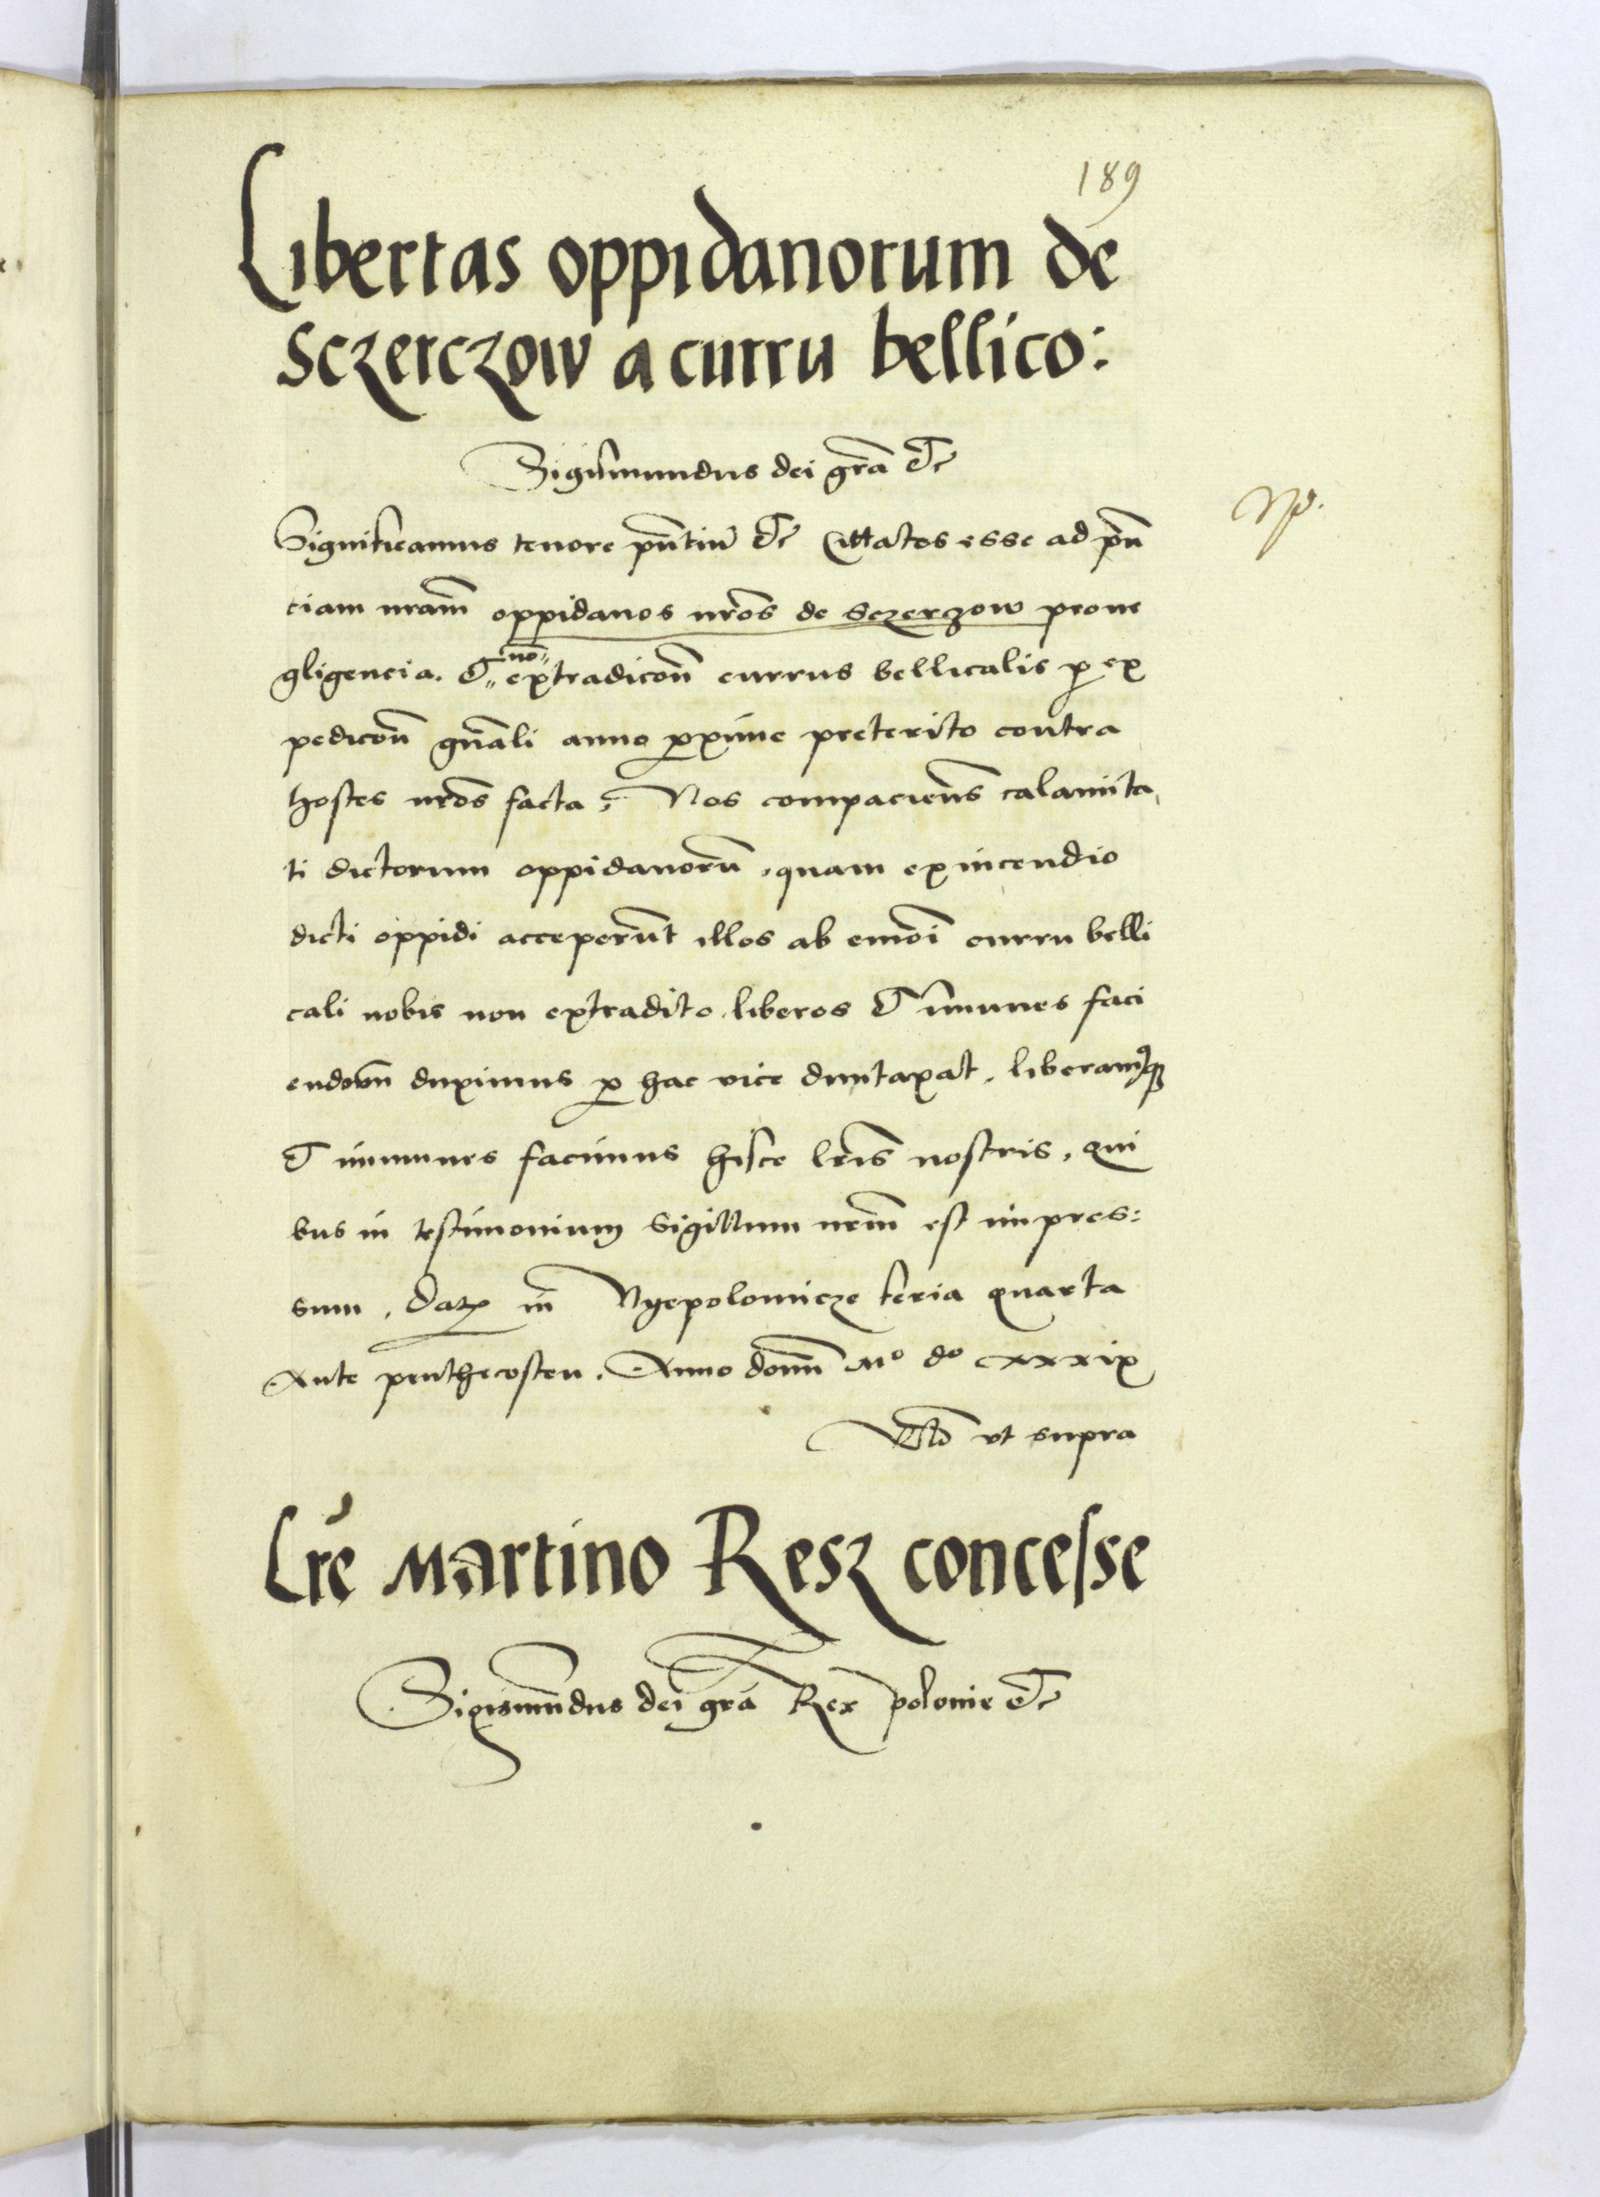 189
Libertas oppidanorum de
Sczerczow a curru bellico:
Sigismundus dei gra̅ &c
Significamus tenore pn̅tiu̅ &c Cittatos esse ad pn̅
ciam nram̅ oppidanos nr̅os de Sczerczow pro ne
gligencia. & no̅ extradico̅n currus bellicalis p ex
pedico̅n gn̅ali anno proxime preterito contra
hostes nr̅os facta, Nos compaciens̅ calamita
ti dictorum oppidanoru̅, quam ex incendio
dicti oppidi acceperu̅t illos ab em̅oi curru belli
cali nobis non extradito liberos & i̅munes faci
endos duximus p hac vice duntaxat, liberamusque
& immunes facimus hisce lr̅is nostris, qui
bus in testimonium sigillum nrm̅ est impres:
sum, Datum in Nyepolomicze feria quarta
Ante penthecosten, Anno domi̅ Mo do cxxxix
ut supra
Lre̅ Martino Resz concesse
Sigismu̅dus dei gra̅ Rex polonie &c